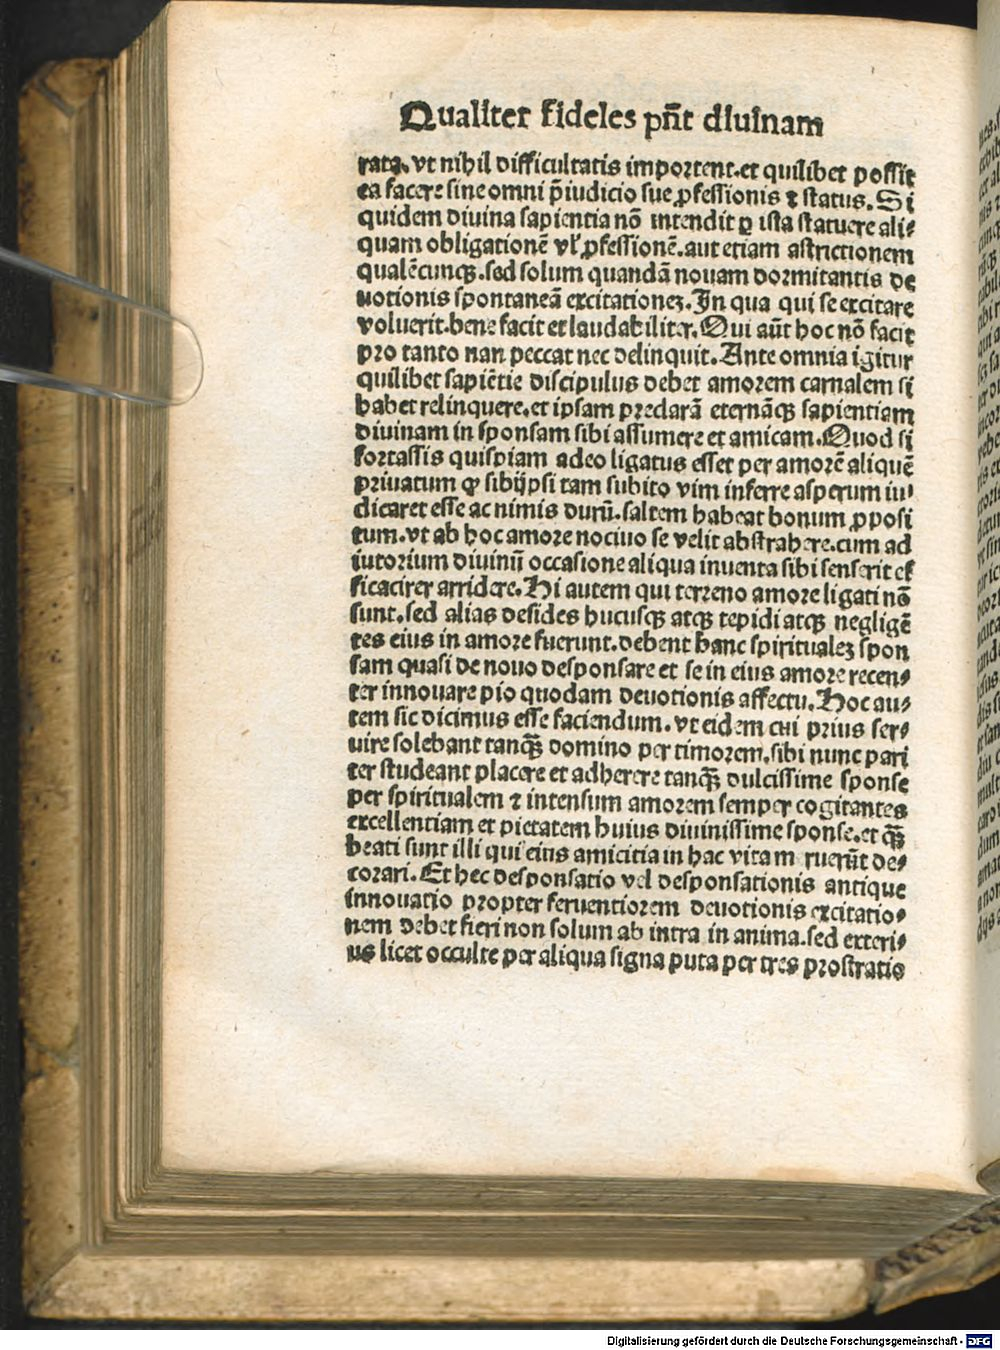 Qualiter fideles pñt diuinam
rata. vt nihil difficultatis importent. et quilibet possit
ea facere sine omni p̄iudicio sue ꝓfessionis ⁊ status. Si
quidem diuina sapientia nō intendit ꝑ ista statuere ali⸗
quam obligationē vl' ꝓfessionē. aut etiam astrictionem
qualēcunqꝫ. sed solum quandā nouam dormitantis de
uotionis spontaneā excitationeꝫ. In qua qui se excitare
voluerit. bene facit et laudabiliter. Qui aūt hoc nō facit
pro tanto nan peccat nec delinquit. Ante omnia igitur
quilibet sapiētie discipulus debet amorem carnalem si
habet relinquere. et ipsam preclarā eternāqꝫ sapientiam
diuinam in sponsam sibi assumere et amicam. Quod si
fortassis quispiam adeo ligatus esset per amorē aliquē
priuatum ꝙ sibijpsi tam subito vim inferre asperum iu⸗
dicaret esse ac nimis durū. saltem habeat bonum ꝓposi
tum. vt ab hoc amore nociuo se velit abstrahere. cum ad
iutorium diuinū occasione aliqua inuenta sibi senserit ef
ficacirer arridere. Hi autem qui terreno amore ligati nō
sunt. sed alias desides hucusqꝫ atqꝫ tepidi atqꝫ negligē
tes eius in amore fuerunt. debent hanc spiritualeꝫ spon
sam quasi de nouo desponsare et se in eius amore recen⸗
ter innouare pio quodam deuotionis affectu. Hoc au⸗
tem sic dicimus esse faciendum. vt eidem cui prius ser⸗
uire solebant tanqꝫ̄ domino per timorem. sibi nunc pari
ter studeant placere et adherere tanqꝫ̄ dulcissime sponse
per spiritualem ⁊ intensum amorem semper cogitantes
excellentiam et pietatem huius diuinissime sponse. et qꝫ̄
beati sunt illi qui eius amicitia in hac vitam ruerūt de⸗
corari. Et hec desponsatio vel desponsationis antique
innouatio propter feruentiorem deuotionis excitatio⸗
nem debet fieri non solum ab intra in anima. sed exteri⸗
us licet occulte per aliqua signa puta per tres prostratis
Digitalisierung gefördert durch die Deutsche Forschungsgemeinschaft - DFG